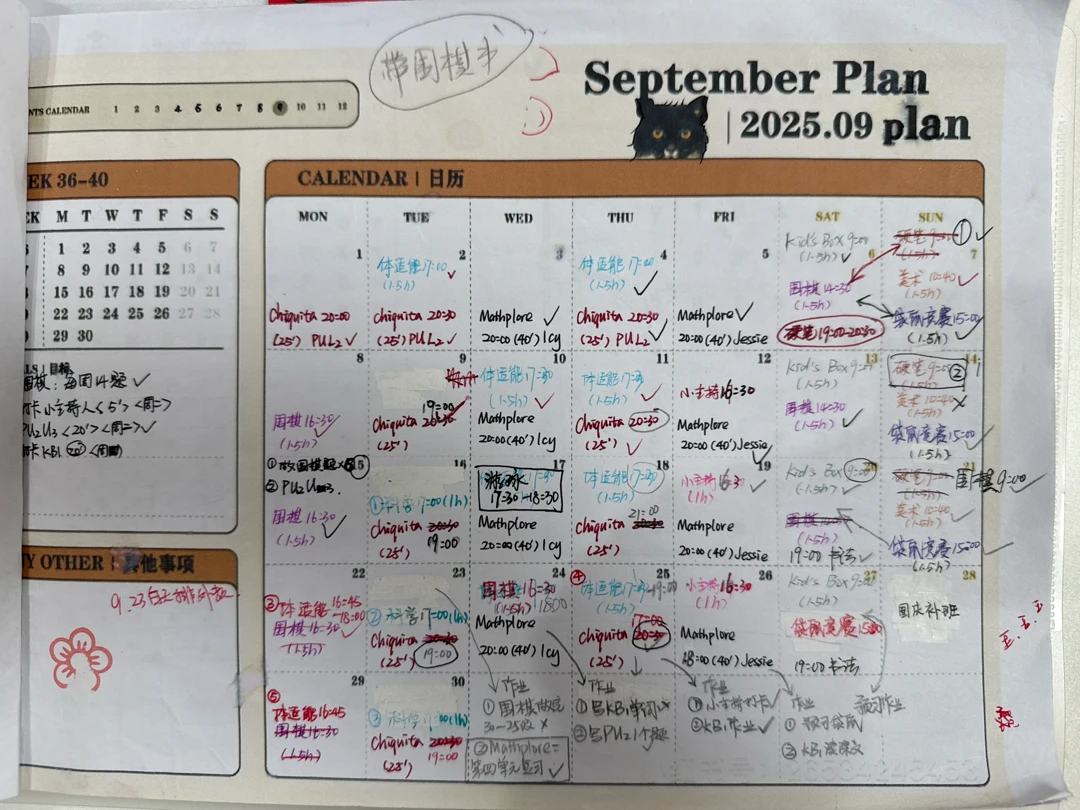 带围棋书
September Plan
| 2025.09 plan
NTS CALENDAR 1 2 3 4 5 6 7 8 9 10 11 12
EEK 36-40
EK M T W T F S S
1 2 3 4 5 6 7
8 9 10 11 12 13 14
15 16 17 18 19 20 21
22 23 24 25 26 27 28
29 30
LS | 目标
围棋：每周14题 ✓
卡小主持人<5'><周二>
PU2U3<20'><周二>✓
卡KB1
Y OTHER | 其他事项
9.23白天
CALENDAR | 日历
MON TUE WED THU FRI SAT SUN
1
Chiquita 20:00
(25') PU2 ✓
2
体适能17:00
(1.5h) ✓
Chiquita 20:30
(25') PU2 ✓
3
Mathplore ✓
20:00(40') Icy
4
体适能17:00
(1.5h) ✓
Chiquita 20:30
(25') PU2 ✓
5
Mathplore ✓
20:00(40') Jessie
6
Kid's Box 9:00
(1.5h) ✓
围棋14:30
(1.5h)
硬笔19:00-20:30
7
硬笔9:00 ① ✓
(1.5h)
美术10:40 ✓
(1.5h)
袋鼠竞赛15:00
(1.5h) ✓
8
围棋16:30
(1.5h)
9
19:00
Chiquita 20:30
(25')
10
体适能17:30
(1.5h) ✓
Mathplore
20:00(40') Icy
11
体适能17:30
(1.5h) ✓
Chiquita 20:30
(25') ✓
12
小主持16:30
Mathplore
20:00(40') Jessie ✓
13
Kid's Box 9:00
(1.5h)
围棋14:30
(1.5h) ✓
14
硬笔9:00 ②
(1.5h)
美术10:40 ×
(1.5h)
袋鼠竞赛15:00 ✓
(1.5h)
15
② PU2U3.
围棋16:30
(1.5h) ✓
16
①科学17:00(1h)
Chiquita 20:30
(25') 19:00
17
游泳
17:30-18:30
Mathplore
20:00(40') Icy
18
体适能17:30
(1.5h)
21:00
Chiquita 20:30
(25')
19
小主持16:30 ✓
(1h)
Mathplore
20:00(40') Jessie
20
Kid's Box 9:00
(1.5h) ✓
19:00 书法 ✓
21
围棋9:00 ✓
(1.5h)
美术10:40 ✓
(1.5h)
袋鼠竞赛15:00 ✓
(1.5h)
22
体适能16:45
-18:00
围棋16:30 ✓
(1.5h)
23
②科学17:00(1h)
Chiquita 20:30
(25') 19:00
24
围棋16:30
(1.5h) 18:00
Mathplore
20:00(40') Icy
25
④
体适能17:30 19:00
(1.5h)
17:00
Chiquita 20:30
(25')
26
小主持16:30
(1h)
Mathplore
18:00(40') Jessie
27
Kid's Box 9:00
(1.5h)
袋鼠竞赛15:00
19:00 书法
28
国庆补班
29
⑤
体适能16:45
围棋16:30
(1.5h)
30
③科学17:00(1h)
Chiquita 20:30
(25') 19:00
作业
①围棋做完
×
②Mathplore=
第四单元复习 ✓
作业
①写KB1单词 ×
②写PU2 1个题
作业
①小主持打卡 ✓
②KB1作业 ✓
作业
①预习袋鼠
②KB1读课文
预习作业
五.五.五